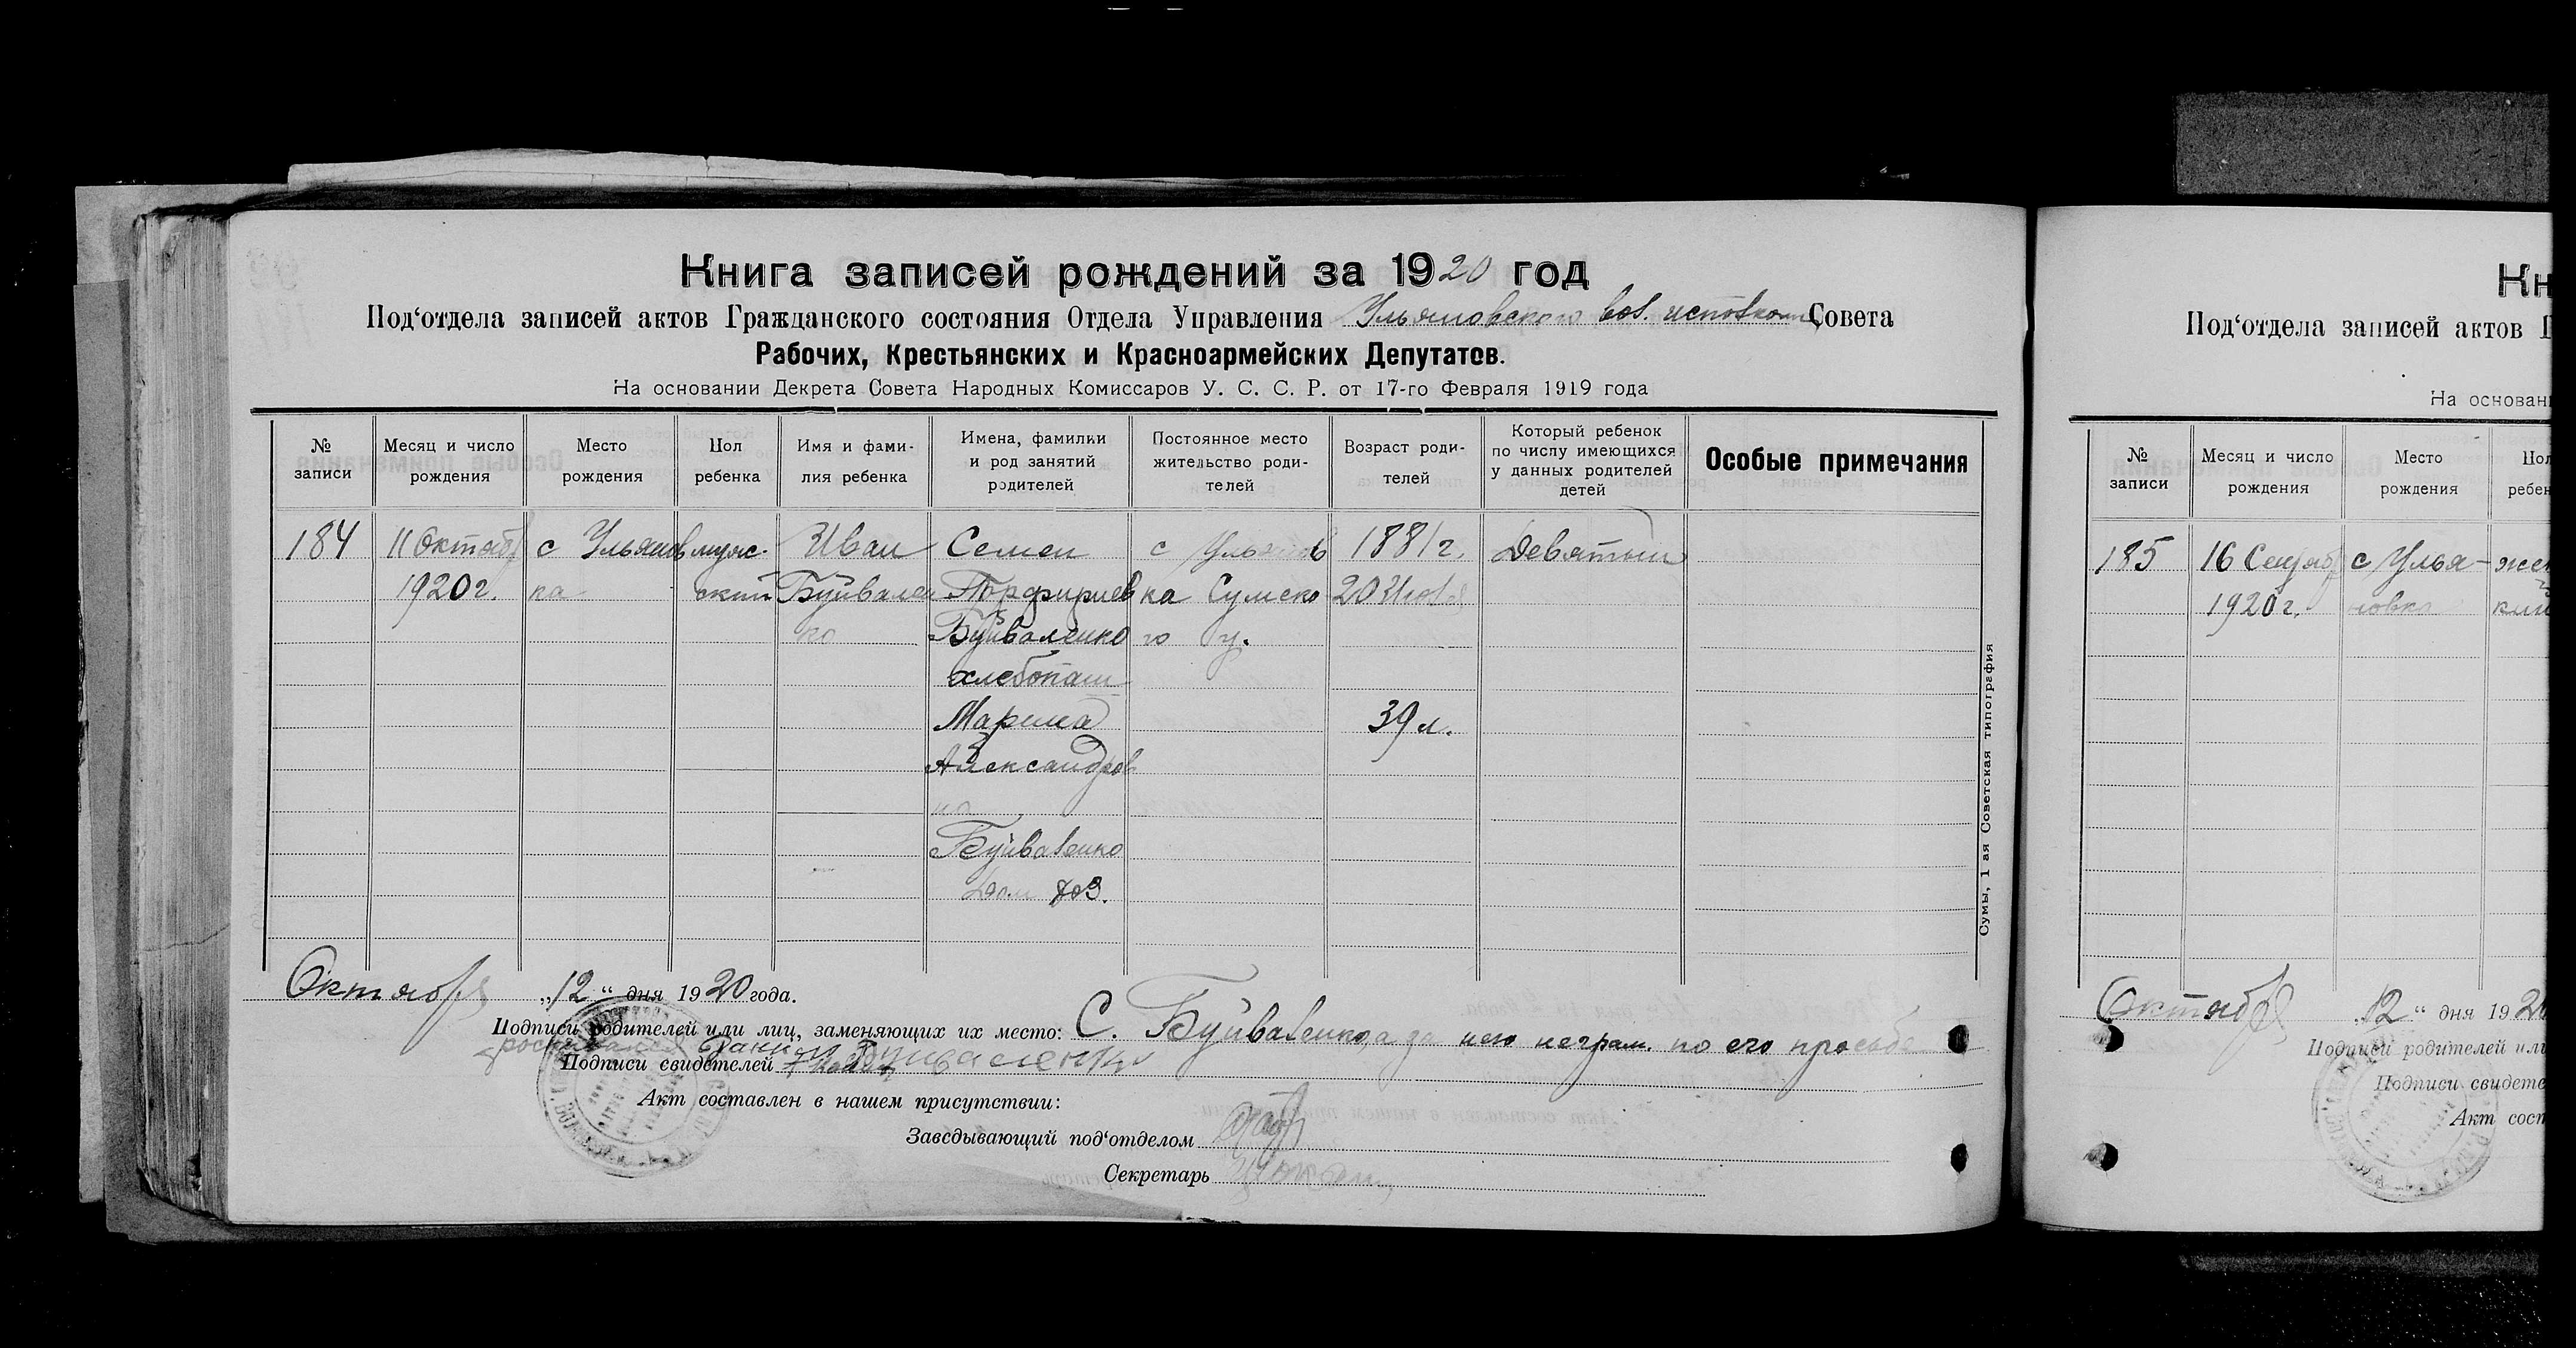 Книга записей рождений за 1920 год
Под‘отдела записей актов Гражданского состояния Отдела Управления Ульяновского вол. исполком Совета
Рабочих, Крестьянских и Красноармейских Депутатов.
На основании Декрета Совета Народных Комиссаров У. С. С. Р. от 17-го Февраля 1919 года
№ записи
Месяц и число рождения
Место рождения
Пол ребенка
Имя и фами-
лия ребенка
Имена, фамилии
и род занятий
родителей
Постоянное место
жительство роди-
телей
Возраст роди-
телей
Который ребенок
по числу имеющихся
у данных родителей
детей
Особые примечания
184
11 Октябр
1920 г.
с Ульянов
ка
муж.
ский
Иван
Буйвален
ко
Семен
Порфириев
Буйваленко
хлебопаш
Марина
Александров
на
Буйваленко
Дом хоз.
с Ульянов
ка Сумско
го у.
1881 г.
20 Июля
39 л.
Девятый
Сумы, 1 ая Советская типография
Октября „12“ дня 1920 года.
Подписи родителей или лиц, заменяющих их место: С. Буйваленко, а за него неграм. по его просьбе
Подписи свидетелей
Буйваленко
Акт составлен в нашем присутствии:
Заведывающий под‘отделом
Секретарь
Кн
Под‘отдела записей актов Г
На основани
№ записи
Месяц и число рождения
Место рождения
Пол
ребен
185
16 Сентябр
1920 г.
с Улья-
новка
жен
ский
Октября „12“ дня 1920
Подписи родителей или
Подписи свидете
Акт сост